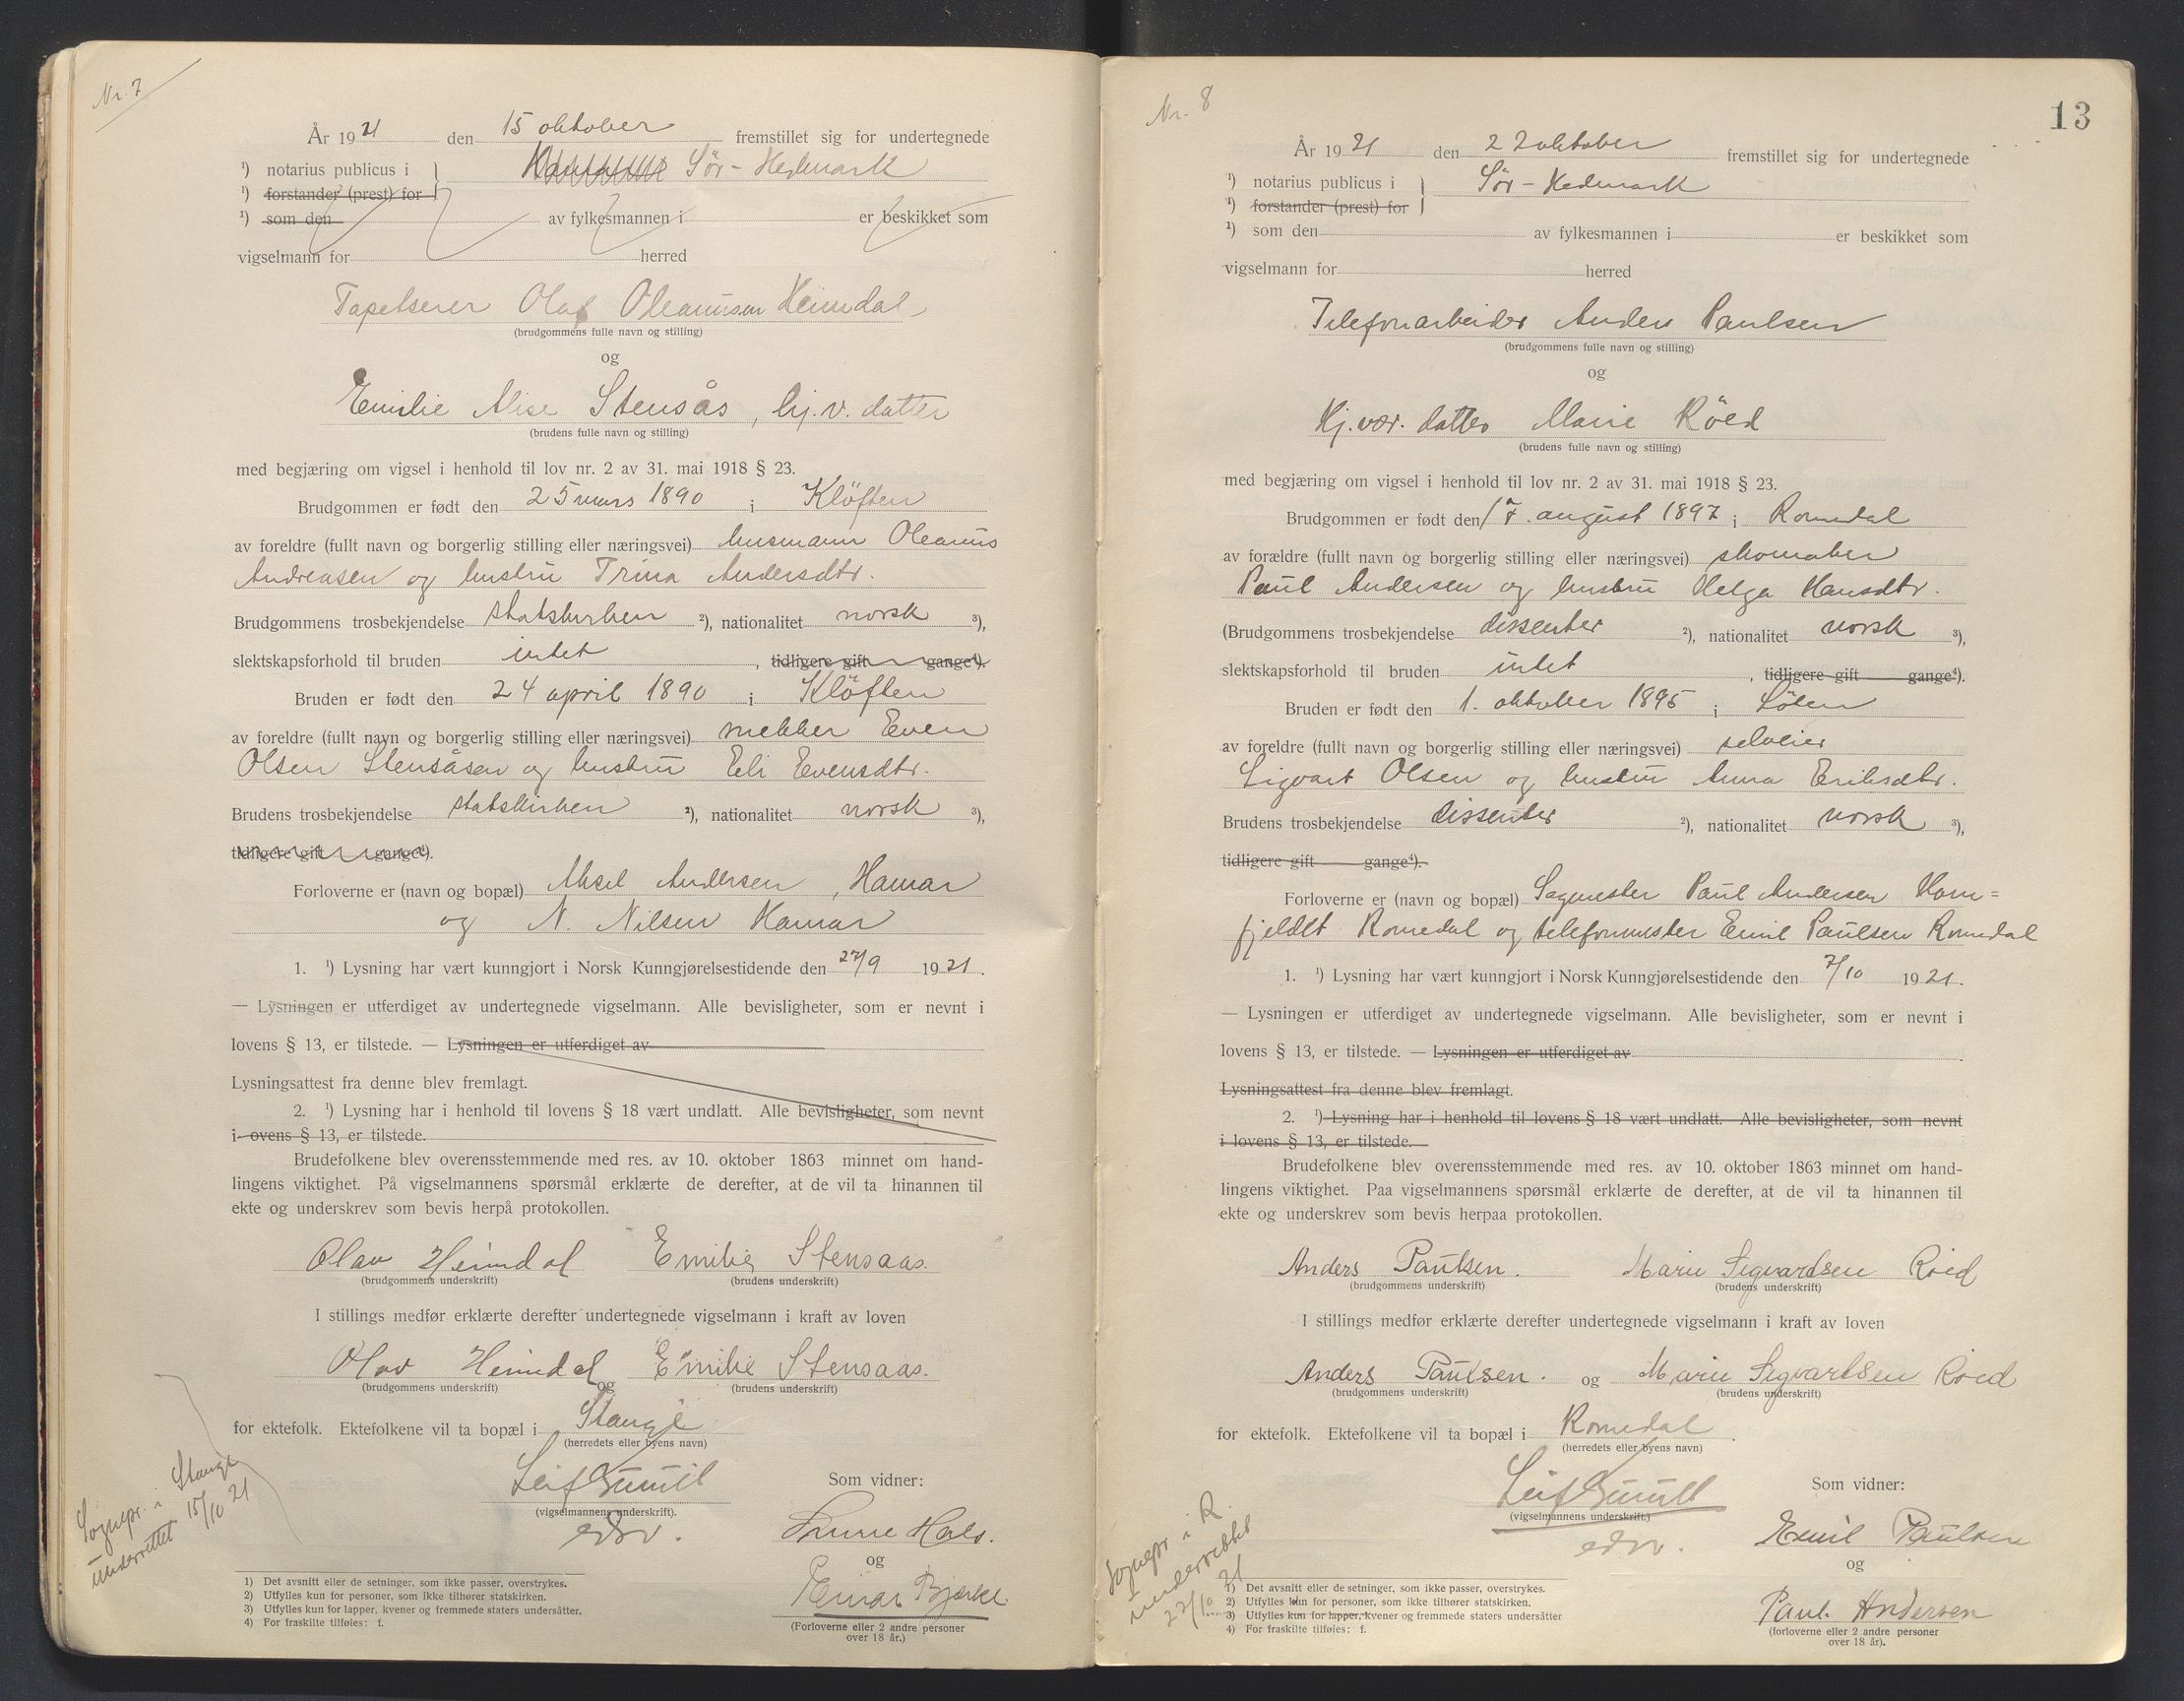 Nr. 7
År 1921 den 15 oktober fremstillet sig for undertegnede
¹) notarius publicus i Sör-Hedmark
¹) forstander (prest) for
¹) som den av fylkesmannen i er beskikket som
vigselmann for herred
Tapetserer Olaf Oleanusen Heimdal
(brudgommens fulle navn og stilling)
og
Emilie Alise Stensås, hj. v. datter
(brudens fulle navn og stilling)
med begjæring om vigsel i henhold til lov nr. 2 av 31. mai 1918 § 23.
Brudgommen er født den 25 mars 1890 i Klöften
av foreldre (fullt navn og borgerlig stilling eller næringsvei) husmann Oleanus
Andreasen og hustru Trina Andersdtr.
Brudgommens trosbekjendelse statskirken ²), nationalitet norsk ³),
slektskapsforhold til bruden intet, tidligere gift gange⁴).
Bruden er født den 24 april 1890 i Klöften
av foreldre (fullt navn og borgerlig stilling eller næringsvei) snekker Even
Olsen Stensåsen og hustru Eli Evensdtr.
Brudens trosbekjendelse statskirken ²), nationalitet norsk ³),
tidligere gift gange⁴).
Forloverne er (navn og bopæl) Aksel Andersen, Hamar
og N. Nilsen Hamar
1. ¹) Lysning har vært kunngjort i Norsk Kunngjørelsestidende den 27/9 1921.
— Lysningen er utferdiget av undertegnede vigselmann. Alle bevisligheter, som er nevnt i
lovens § 13, er tilstede. — Lysningen er utferdiget av
Lysningsattest fra denne blev fremlagt.
2. ¹) Lysning har i henhold til lovens § 18 vært undlatt. Alle bevisligheter, som nevnt
i ovens § 13, er tilstede.
Brudefolkene blev overensstemmende med res. av 10. oktober 1863 minnet om hand-
lingens viktighet. På vigselmannens spørsmål erklærte de derefter, at de vil ta hinannen til
ekte og underskrev som bevis herpå protokollen.
Olav Heimdal Emilie Stensaas.
(brudgommens underskrift) (brudens underskrift)
I stillings medfør erklærte derefter undertegnede vigselmann i kraft av loven
Olav Heimdal og Emilie Stensaas.
(brudgommens underskrift) (brudens underskrift)
for ektefolk. Ektefolkene vil ta bopæl i Stange
(herredets eller byens navn)
Sognepr. i Stange
underrettet 15/10 21
Leif
(vigselmannens underskrift).
Som vidner:
Hals.
og
Einar Bjerke.
(Forloverne eller 2 andre personer
over 18 år.)
1) Det avsnitt eller de setninger, som ikke passer, overstrykes.
2) Utfylles kun for personer, som ikke tilhører statskirken.
3) Utfylles kun for lapper, kvener og fremmede staters undersåtter.
4) For fraskilte tilføies: f.
Nr. 8
13
År 1921 den 22 oktober fremstillet sig for undertegnede
¹) notarius publicus i Sör-Hedmark
¹) forstander (prest) for
¹) som den av fylkesmannen i er beskikket som
vigselmann for herred
Telefonarbeider Anders Paulsen
(brudgommens fulle navn og stilling)
og
Hj. vær. datter Marie Röed
(brudens fulle navn og stilling)
med begjæring om vigsel i henhold til lov nr. 2 av 31. mai 1918 § 23.
Brudgommen er født den 17. august 1897 i Romedal
av forældre (fullt navn og borgerlig stilling eller næringsvei) skomaker
Paul Andersen og hustru Helga Hansdtr.
(Brudgommens trosbekjendelse dissenter ²), nationalitet norsk ³),
slektskapsforhold til bruden intet, tidligere gift gange⁴).
Bruden er født den 1. oktober 1895 i Löten
av foreldre (fullt navn og borgerlig stilling eller næringsvei) selveier
Sigvart Olsen og hustru Anna Eriksdtr.
Brudens trosbekjendelse dissenter ²), nationalitet norsk ³),
tidligere gift gange⁴).
Forloverne er (navn og bopæl) Sagmester Paul Andersen Horn=
fjeldet Romedal og telefonmester Emil Paulsen Romedal
1. ¹) Lysning har vært kunngjort i Norsk Kunngjørelsestidende den 7/10 1921.
— Lysningen er utferdiget av undertegnede vigselmann. Alle bevisligheter, som er nevnt i
lovens § 13, er tilstede. — Lysningen er utferdiget av
Lysningsattest fra denne blev fremlagt.
2. ¹) Lysning har i henhold til lovens § 18 vært undlatt. Alle bevisligheter, som nevnt
i lovens § 13, er tilstede.
Brudefolkene blev overensstemmende med res. av 10. oktober 1863 minnet om hand-
lingens viktighet. Paa vigselmannens spørsmål erklærte de derefter, at de vil ta hinannen til
ekte og underskrev som bevis herpaa protokollen.
Anders Paulsen. Marie Sigvardsen Röed
(brudgommens underskrift) (brudens underskrift)
I stillings medfør erklærte derefter undertegnede vigselmann i kraft av loven
Anders Paulsen. og Marie Sigvartsen Röed
(brudgommens underskrift) (brudens underskrift)
for ektefolk. Ektefolkene vil ta bopæl i Romedal.
(herredets eller byens navn)
Sognepr. i R.
underrettet
22/10 21
Leif
(vigselmannens underskrift.)
Som vidner:
Emil Paulsen
og
Paul Andersen
(forloverne eller 2 andre personer
over 18 år).
1) Det avsnitt eller de setninger, som ikke passer, overstrykes.
2) Utfylles kun for personer, som ikke tilhører statskirken.
3) Utfylles kun for lapper, kvener og fremmede staters undersåtter
4) For fraskilte tilføies: f.